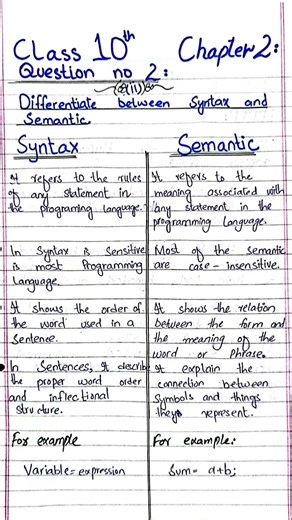 Class 10th Chapter 2:
Question no 2:
Differentiate between Syntax and
Semantic.
Syntax
It refers to the rules
of any statement in
the programing language.
In Syntax is Sensitive
is most Programming
Language.
It shows the order of
the word used in a
Sentence.
In Sentences, It describ
the proper word order
and inflectional
Structure.
For example
Variable = expression
Semantic
It refers to the
meaning associated with
any statement in the
programming Language.
Most of the semantic
are case - insensitive.
It shows the relation
between the form and
the meaning of the
word or Phrase.
It explain the
connection between
Symbols and things
they represent.
For example:
Sum = a+b;